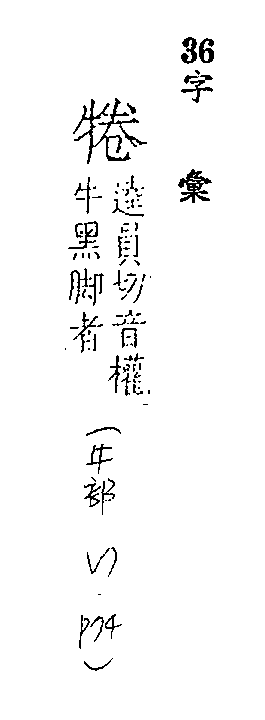 36字彙
犈
逵員切音權
牛黑脚者
(牛部 p74)